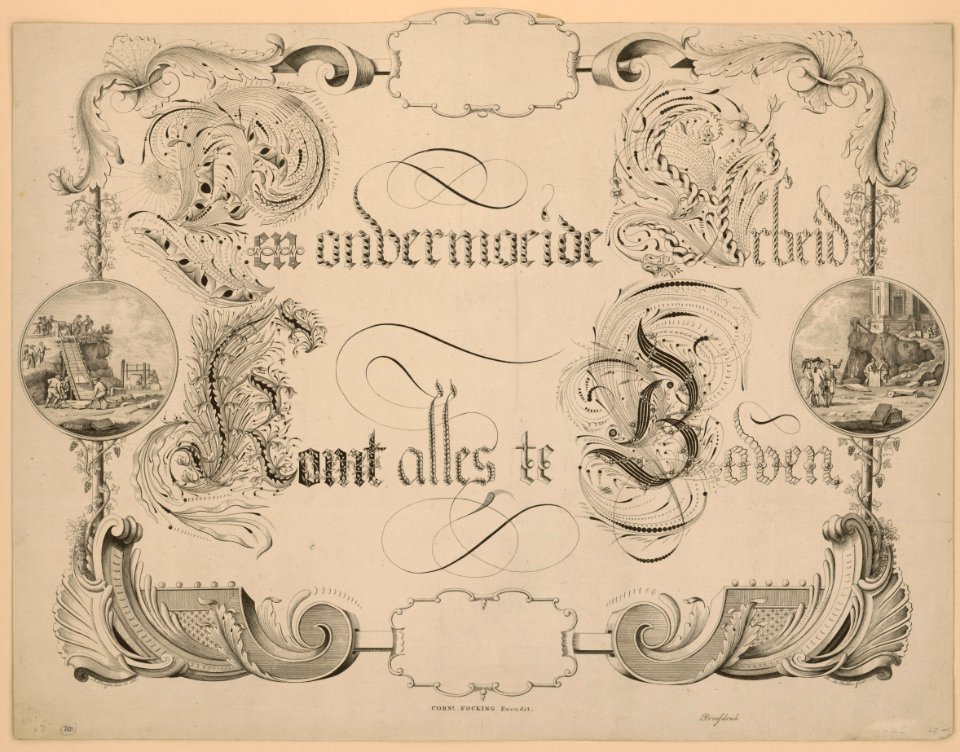 Een ondermoeide Arbeid
Komt alles te Boven.
CORNs. FOCKING Excudit.
Proefdruk
20